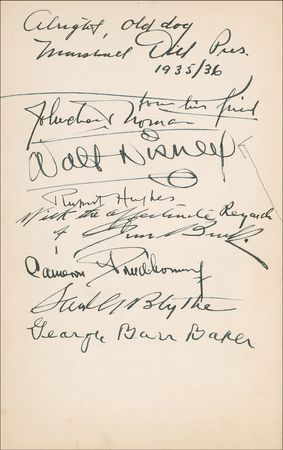 Alright, old dog
Marshall Dill Pres.
1935/36
from his friend
Norman
Walt Disney
Rupert Hughes
With the affectionate Regards
of
Cameron Prud'homme
Samuel G Blythe
George Barr Baker